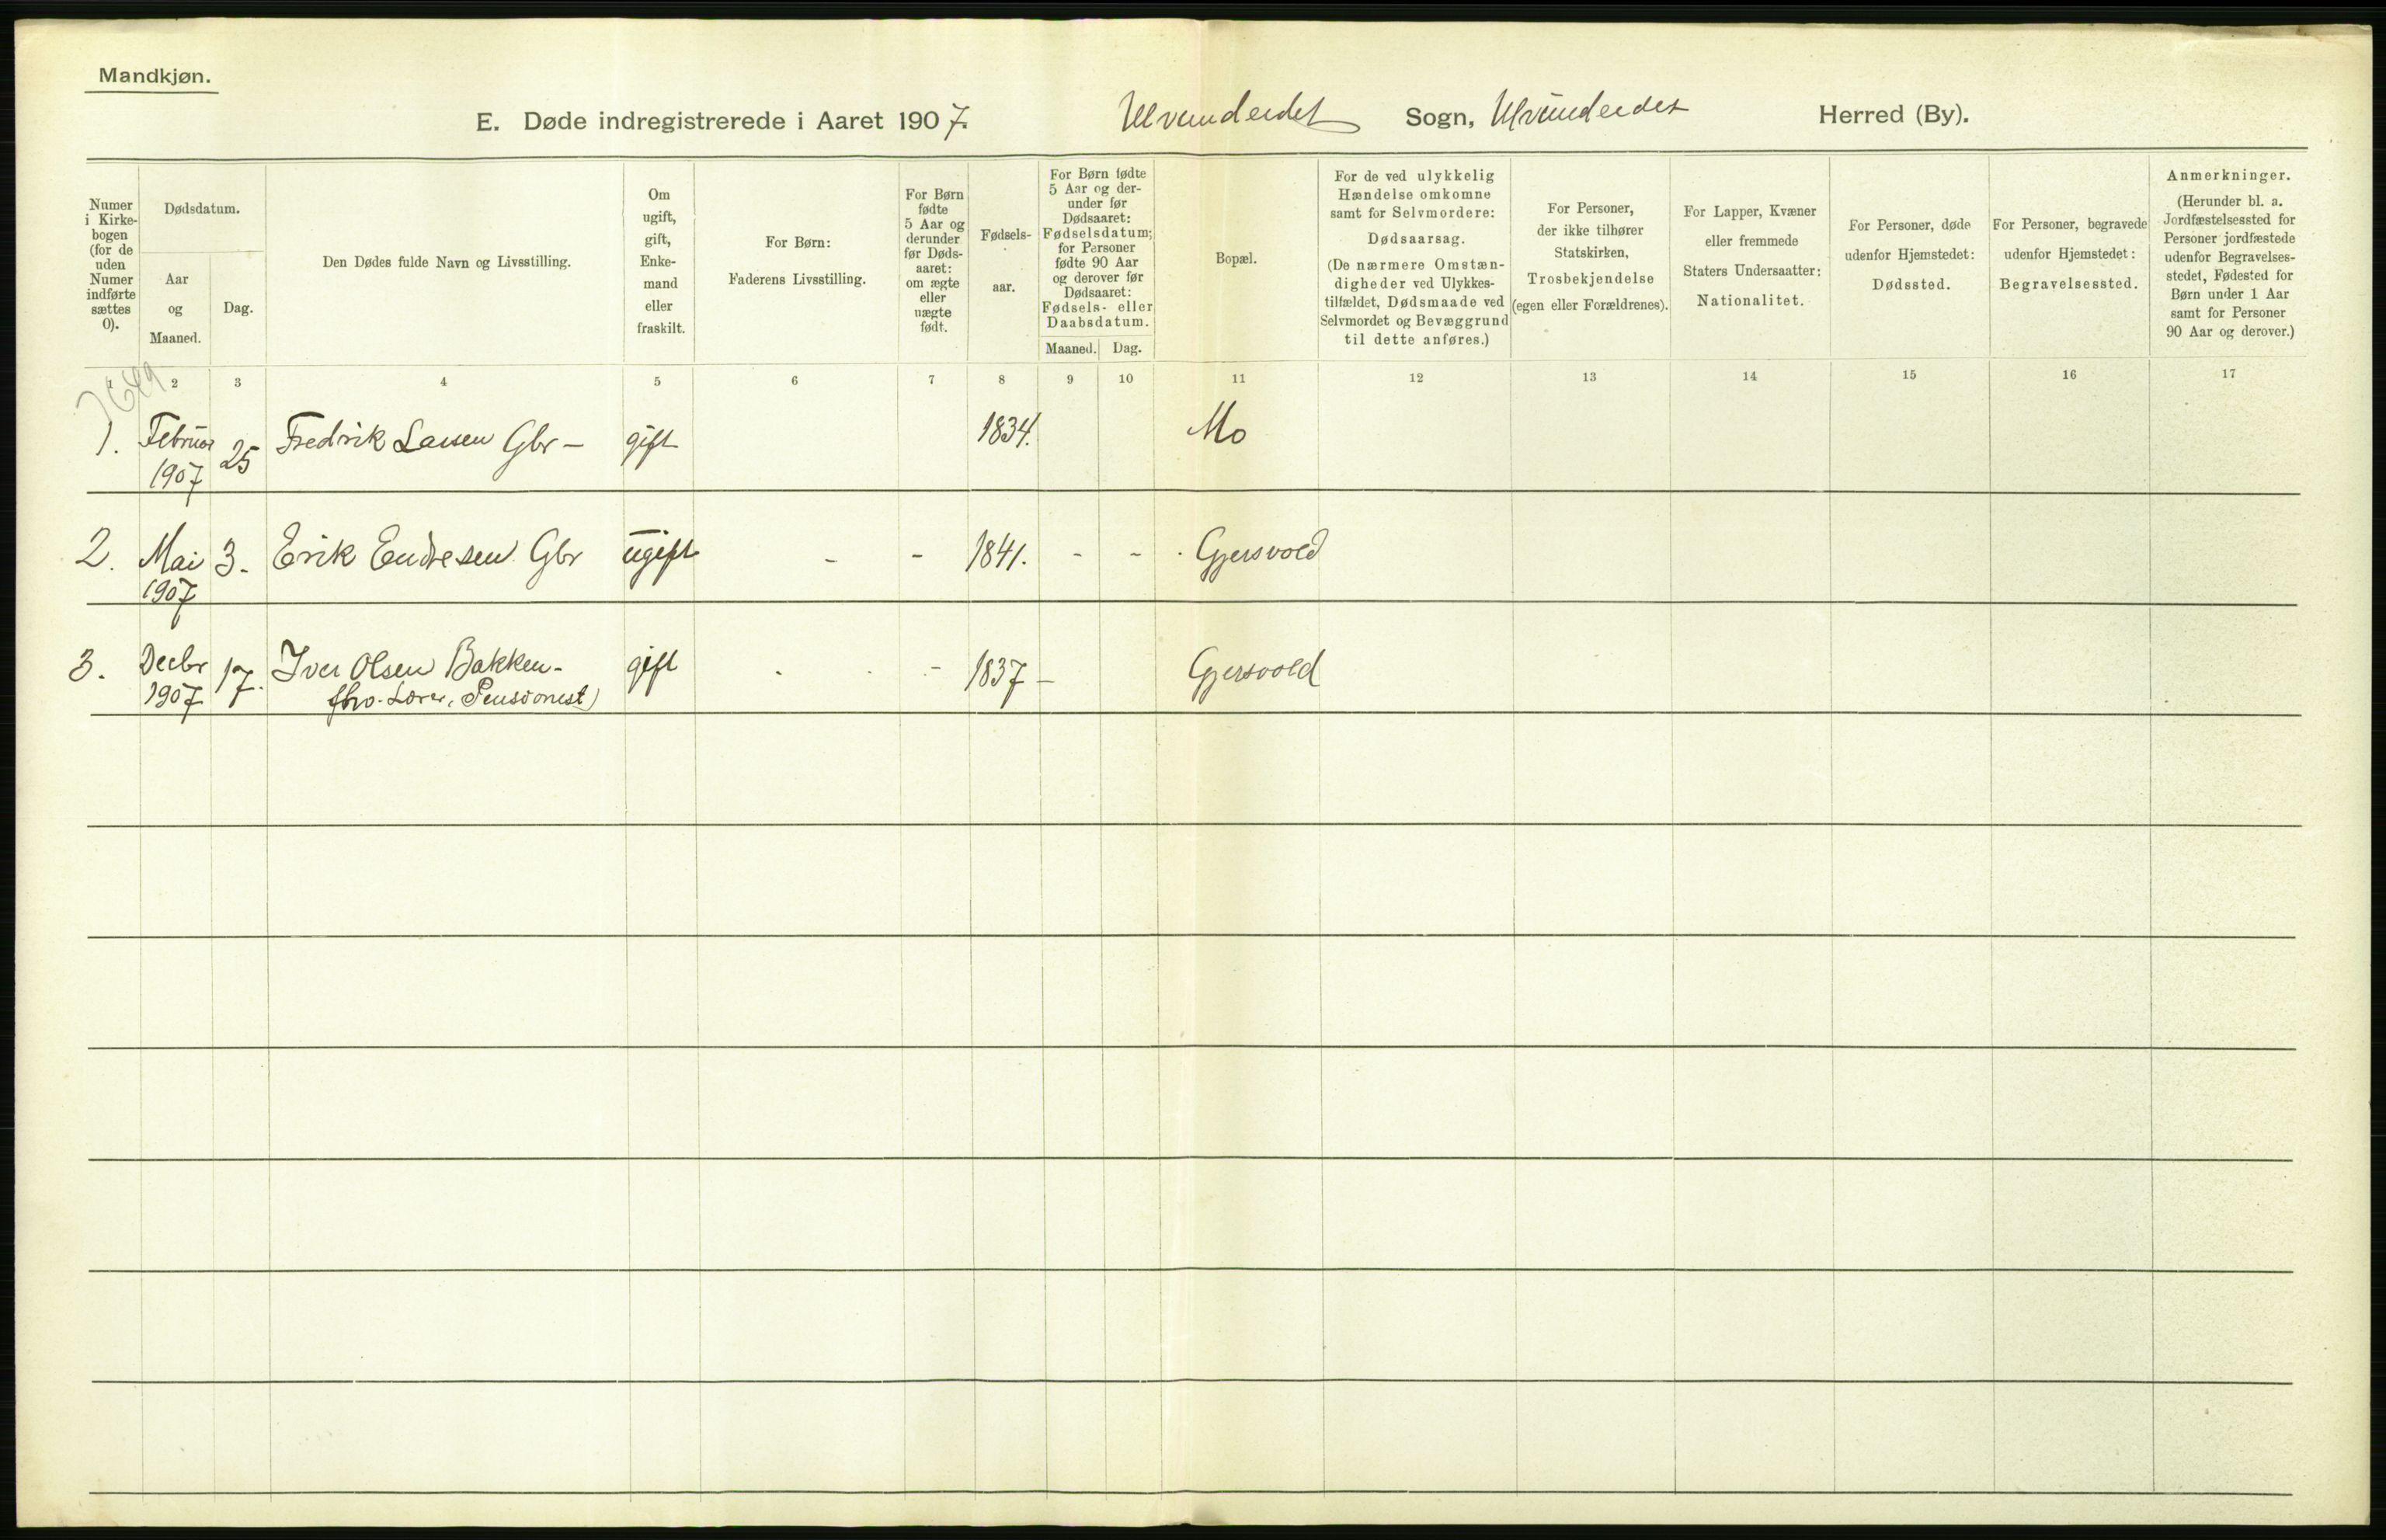 Mandkjøn.
E. Døde indregistrerede i Aaret 1907. Ulvundeidet Sogn, Ulvundeidet Herred (By).
Numer i Kirkebogen (for de uden Numer indførte sættes 0).
Dødsdatum.
Aar og Maaned.
Dag.
Den Dødes fulde Navn og Livsstilling.
Om ugift, gift, Enkemand eller fraskilt.
For Børn:
Faderens Livsstilling.
For Børn fødte 5 Aar og derunder før Dødsaaret: om ægte eller uægte født.
Fødselsaar.
For Børn fødte 5 Aar og derunder før Dødsaaret: Fødselsdatum; for Personer fødte 90 Aar og derover før Dødsaaret: Fødsels- eller Daabsdatum.
Maaned. Dag.
Bopæl.
For de ved ulykkelig Hændelse omkomne samt for Selvmordere: Dødsaarsag.
(De nærmere Omstændigheder ved Ulykkestilfældet, Dødsmaade ved Selvmordet og Bevæggrund til dette anføres.)
For Personer, der ikke tilhører Statskirken, Trosbekjendelse (egen eller Forældrenes).
For Lapper, Kvæner eller fremmede Staters Undersaatter: Nationalitet.
For Personer, døde udenfor Hjemstedet: Dødssted.
For Personer, begravede udenfor Hjemstedet: Begravelsessted.
Anmerkninger.
(Herunder bl. a. Jordfæstelsessted for Personer jordfæstede udenfor Begravelsesstedet, Fødested for Børn under 1 Aar samt for Personer 90 Aar og derover.)
1 2 3 4 5 6 7 8 9 10 11 12 13 14 15 16 17
1. Februar 25 Fredrik Larsen Gbr - gift 1834. Mo
1907
2. Mai 3. Erik Endresen Gbr ugift - - 1841. - - Gjersvold
1907
3. Decbr 17. Iver Olsen Bakken - gift - 1837 - Gjersvold
1907 fhv. Lærer, Pensionist)